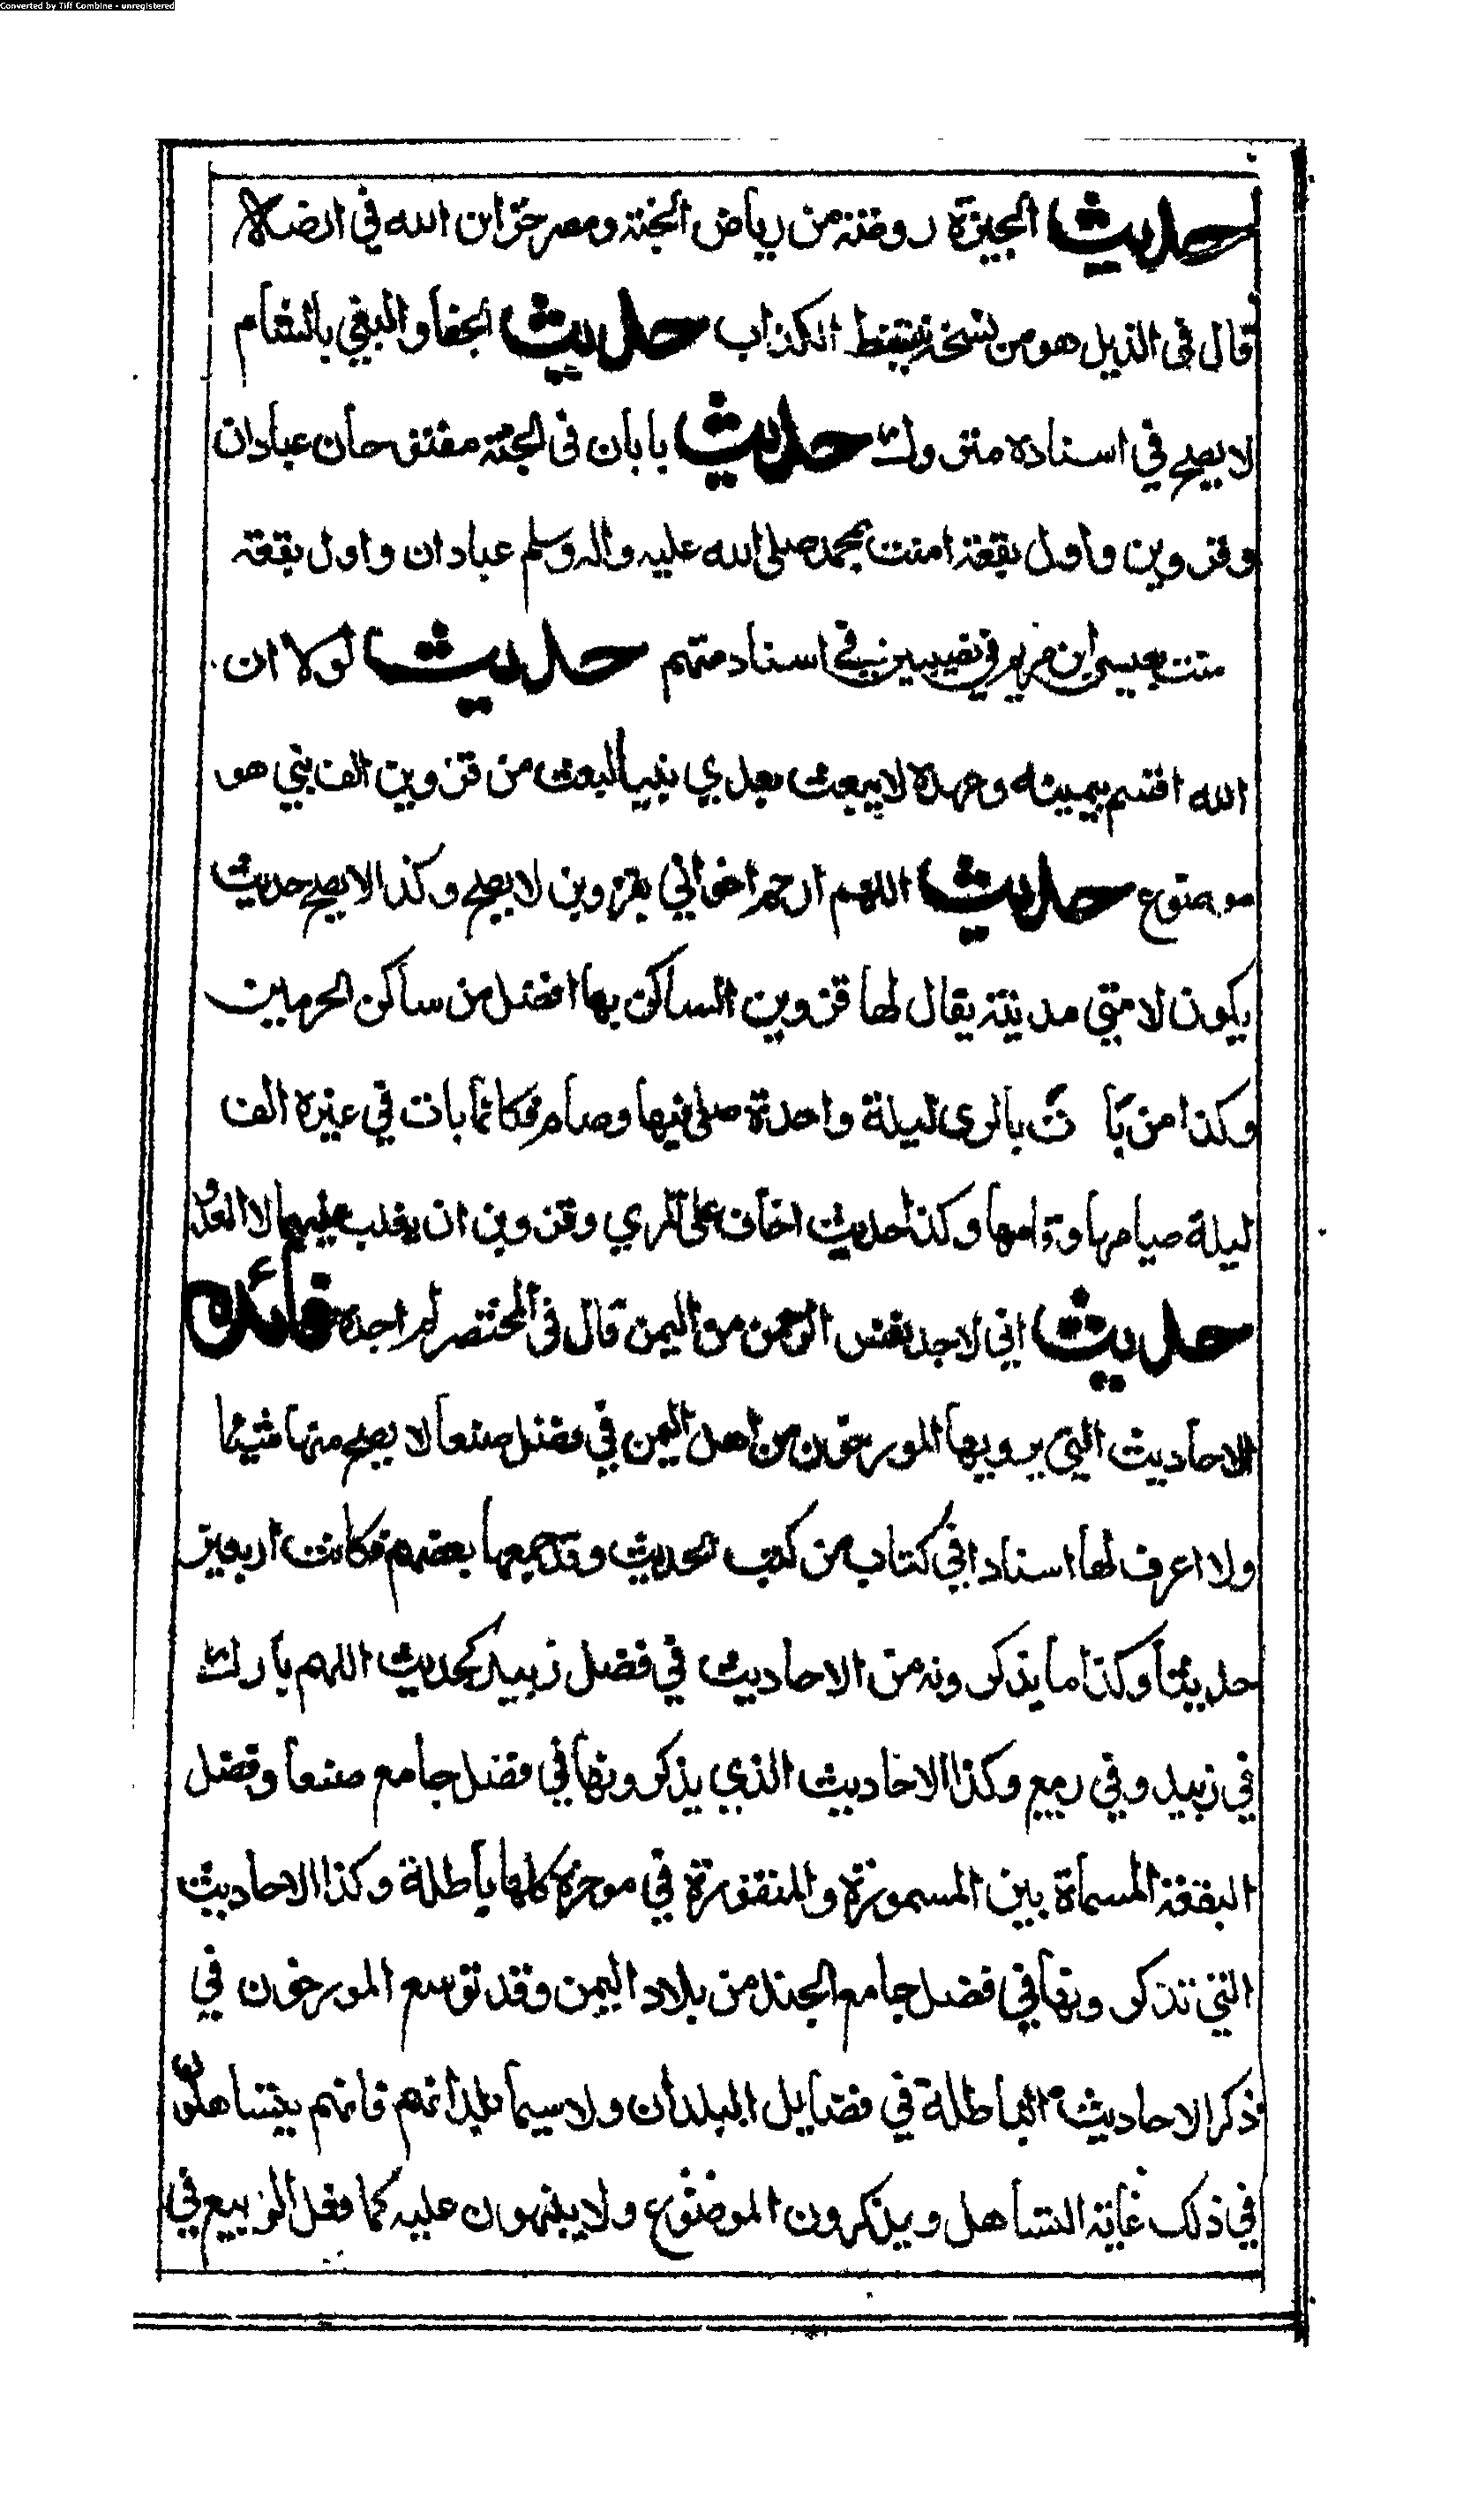 Converted by Tiff Combine - unregistered
حديث الجيزة روضة من رياض الجنة ومصر خزاين الله في ارضه
قال في الذيل هو من نسخة نبيط الكذاب حديث الجفا والبغي بالشام
لا يصح في اسناده متروك حديث بابان في الجنة مفتوحان عبادان
وقزوين واول بقعة امنت بمحمد صلى الله عليه واله وسلم عبادان واول بقعة
منت بعيسى ابن مريم في نصيبين في اسناد متهم حديث لولا ان
الله اقسم بيمينه وعهده لا يبعث بعدي نبيا لبعث من قزوين الف نبي هو
موضوع حديث اللهم ارحم اخواني بقزوين لا يصح وكذا لا يصح حديث
يكون لامتي مدينة يقال لها قزوين الساكن بها افضل من ساكن الحرمين
وكذا من بات بالري ليلة واحدة صلى فيها وصام فكانما بات في غيره الف
ليلة صيامها وقيامها وكذا حديث اخاف على الري وقزوين ان يغلب عليهما لا العدو
حديث اني لاجد نفس الرحمن من اليمن قال في المختصر لم اجده فائده
الاحاديث التي يرويها المورخون من اهل اليمن في فضل صنعا لا يصح منها شيئا
ولا اعرف لها اسنادا في كتاب من كتب الحديث وقد جمعها بعضهم فكانت اربعين
حديثا وكذا ما يذكرونه من الاحاديث في فضل زبيد كحديث اللهم بارك
في زبيد وفي رمع وكذا الاحاديث الذي يذكرونها في فضل جامع صنعا وفضل
البقعة المسماة بين المسمورة والمنقورة في موخره كلها باطلة وكذا الاحاديث
التي تذكرونها في فضل جامع الجند من بلاد اليمن وقد توسع المورخون في
ذكر الاحاديث الباطلة في فضايل البلدان ولا سيما بلدانهم فانهم يتساهلون
في ذلك غاية التساهل ويذكرون الموضوع ولا ينبهون عليه كما فعل الربيع في